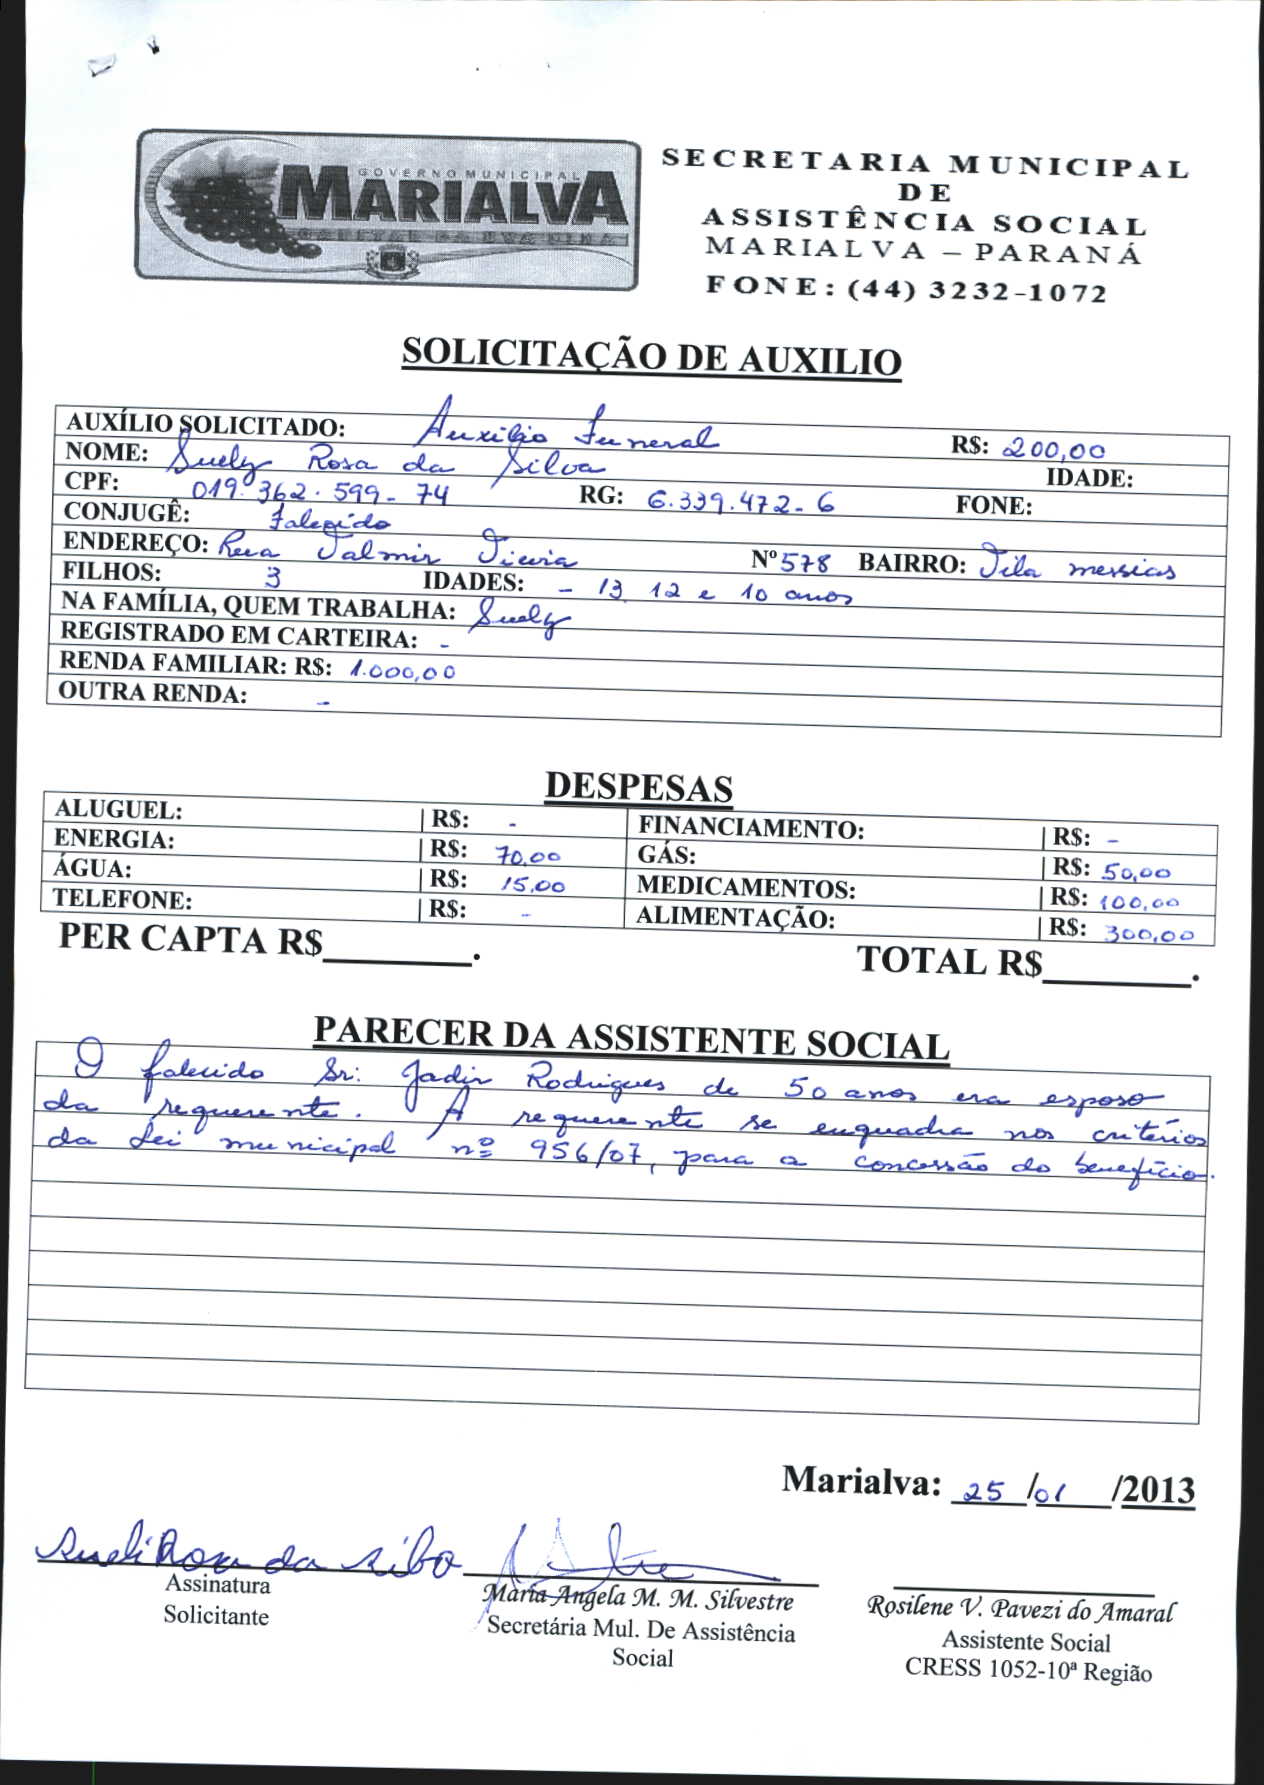 GOVERNO MUNICIPAL
MARIALVA
CAPITAL DA UVA FINA
SECRETARIA MUNICIPAL
DE
ASSISTÊNCIA SOCIAL
MARIALVA – PARANÁ
FONE: (44) 3232-1072
SOLICITAÇÃO DE AUXILIO
AUXÍLIO SOLICITADO: Auxilio Funeral R$: 200,00
NOME: Suely Rosa da Silva IDADE:
CPF: 019.362.599-74 RG: 6.339.472-6 FONE:
CONJUGÊ: Falecido
ENDEREÇO: Rua Valmir Vieira Nº 578 BAIRRO: Vila messias
FILHOS: 3 IDADES: - 13, 12 e 10 anos
NA FAMÍLIA, QUEM TRABALHA: Suely
REGISTRADO EM CARTEIRA: -
RENDA FAMILIAR: R$: 1.000,00
OUTRA RENDA: -
DESPESAS
ALUGUEL: | R$: - FINANCIAMENTO: | R$: -
ENERGIA: | R$: 70,00 GÁS: | R$: 50,00
ÁGUA: | R$: 15,00 MEDICAMENTOS: | R$: 100,00
TELEFONE: | R$: - ALIMENTAÇÃO: | R$: 300,00
PER CAPTA R$________. TOTAL R$________.
PARECER DA ASSISTENTE SOCIAL
O falecido Sr: Jadir Rodrigues de 50 anos era esposo
da requerente. A requerente se enquadra nos critérios
da Lei municipal nº 956/07, para a concessão do benefício.
Marialva: 25/01/2013
Sueli Rosa da silva
Assinatura
Solicitante
Maria Angela M. M. Silvestre
Secretária Mul. De Assistência
Social
Rosilene V. Pavezi do Amaral
Assistente Social
CRESS 1052-10ª Região